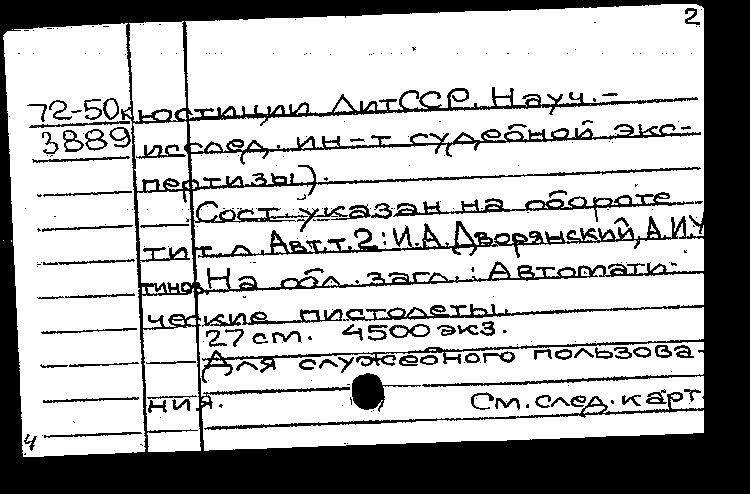 2
72-50к юстиции ЛитССР. Науч.-
3889 исслед. ин-т судебной экс-
пертизы).
Сост. указан на обороте
тит. л. Авт. т. 2: И.А. Дворянский, А.И. У
тинов. На обл. загл.: Автомати-
ческие пистолеты.
27 см. 4500 экз.
Для служебного пользова-
ния. См. след. карт.
4